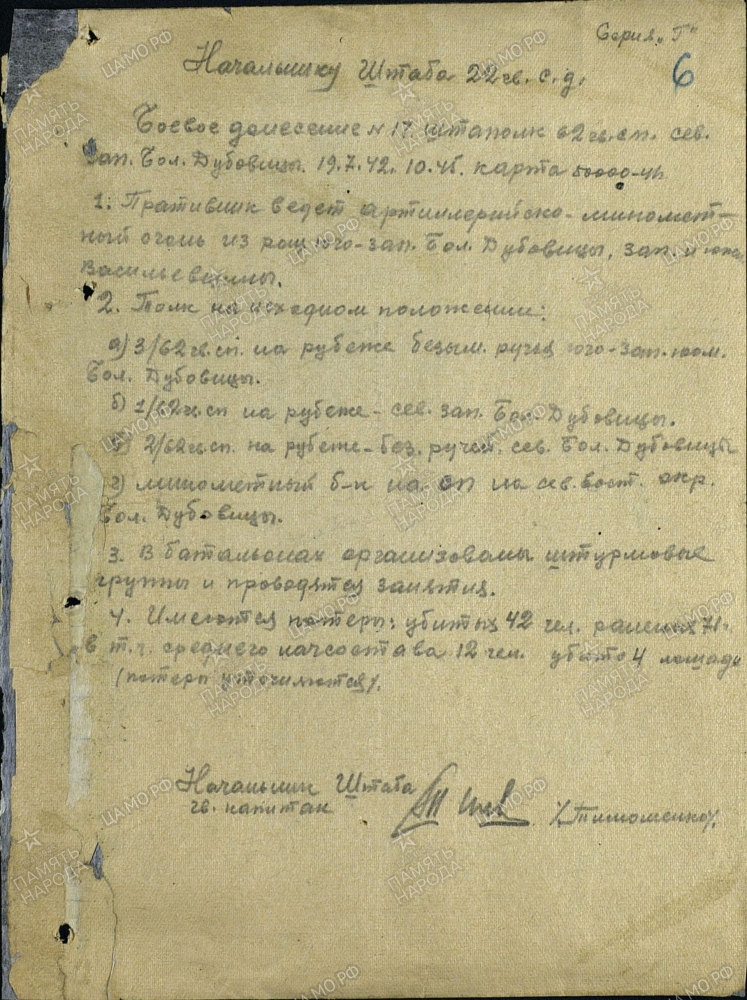 Серия „Г"
6
Начальнику Штаба 22 гв. с.д.
Боевое донесение N 17. штаполк 62 гв. сп. сев.
зап. Бол. Дубовицы. 19.7.42. 10.45. карта 50000-41.
1. Противник ведет артиллерийско-миномет-
ный огонь из рощ юго-зап. Бол. Дубовицы, зап. и южн.
Васильевщины.
2. Полк на исходном положении:
а) 3/62 гв. сп. на рубеже безым. ручья юго-зап.
Бол. Дубовицы.
б) 1/62 гв. сп на рубеже - сев. зап. Бол. Дубовицы.
в) 2/62 гв. сп. на рубеже - без. ручей. сев. Бол. Дубовицы
г) минометный б-н на оп на сев. вост. окр.
Бол. Дубовицы.
3. В батальонах организованы штурмовые
группы и проводятся занятия.
4. Имеются потеры: убитых 42 чел. раненых 71-
в т.ч. среднего начсостава 12 чел. убито 4 лошади
(потеры уточняются).
Начальник Штаба
гв. капитан /Тимошенко/.